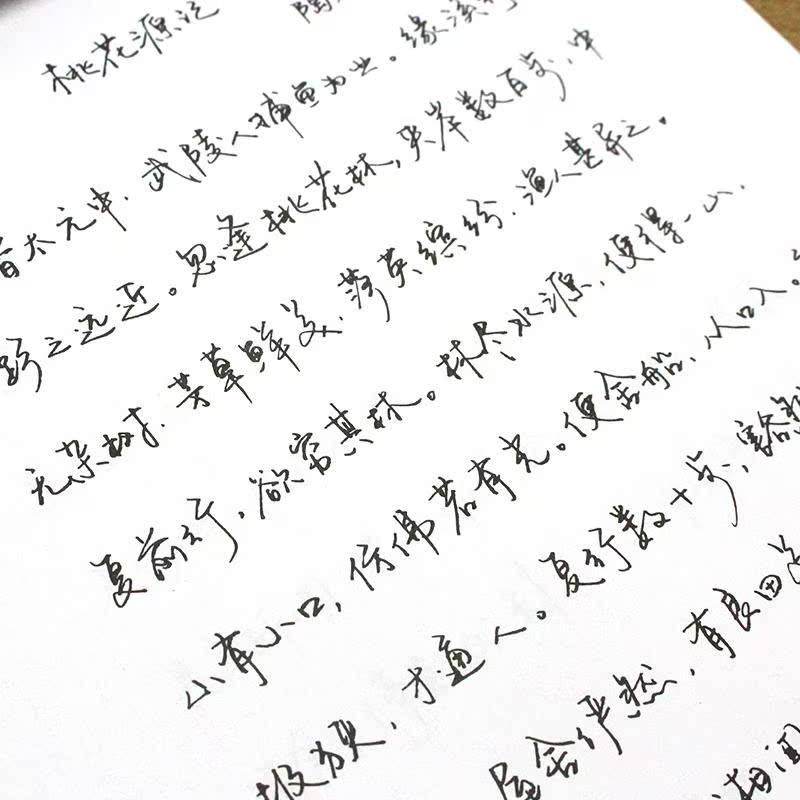 桃花源记 陶
晋太元中，武陵人捕鱼为业。缘溪行
路之远近。忽逢桃花林，夹岸数百步，中
无杂树，芳草鲜美，落英缤纷，渔人甚异之。
复前行，欲穷其林。林尽水源，便得一山，
山有小口，仿佛若有光。便舍船，从口入。
极狭，才通人。复行数十步，豁
屋舍俨然，有良田
相闻